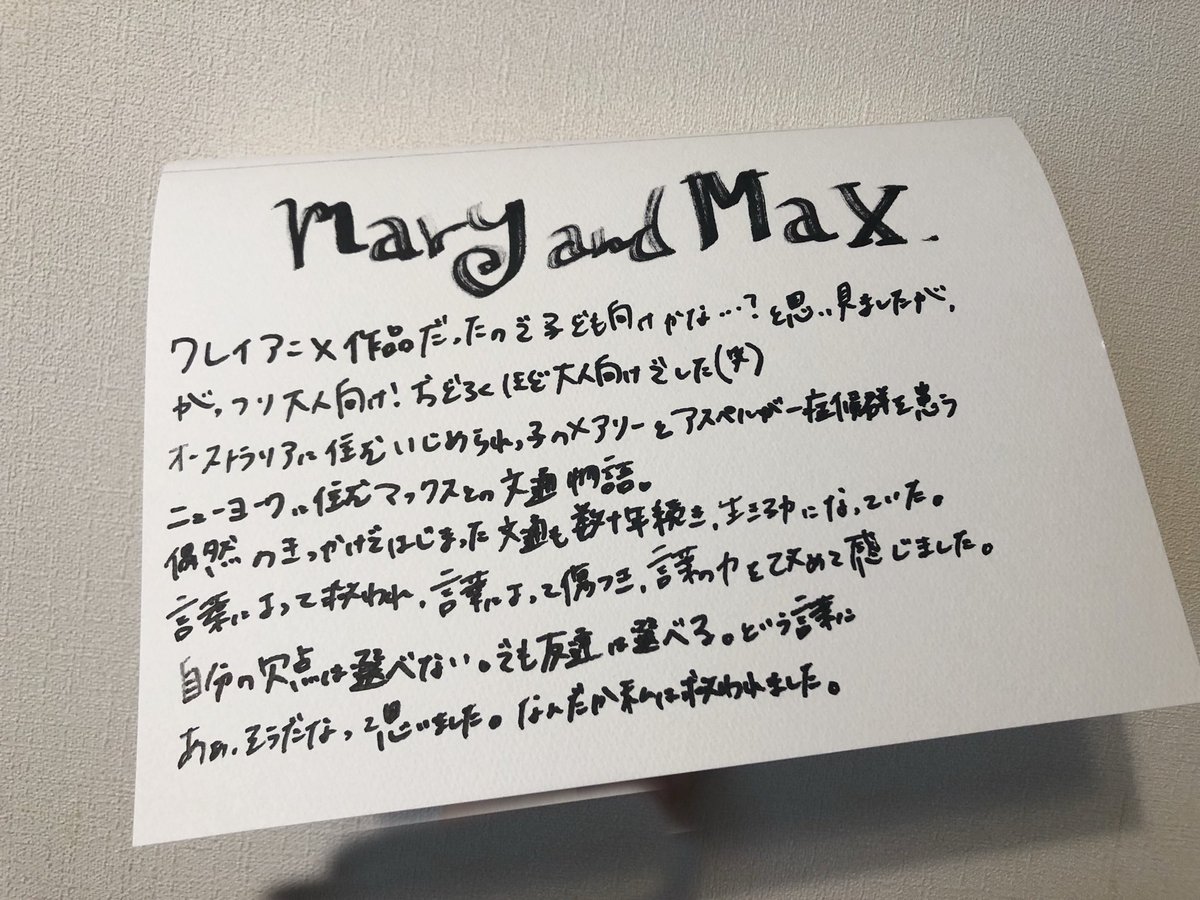 Mary and Max.
クレイアニメ作品だったので子ども向けかな…?と思い見ましたが、
が、っつり大人向け!おどろくほど大人向けでした(笑)
オーストラリアに住むいじめられっ子のメアリーとアスペルガー症候群を患う
ニューヨークに住むマックスとの文通物語。
偶然のきっかけではじまった文通も数十年続き、生きる力になっていた。
言葉によって救われ、言葉によって傷つき、言葉の力を改めて感じました。
自分の欠点は選べない。でも友達は選べる。という言葉に
あぁ、そうだなって思いました。なんだか私は救われました。